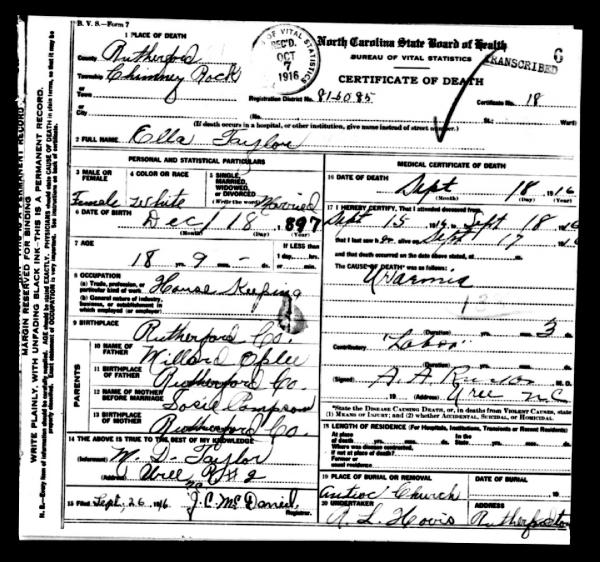 B. V. S.—Form 7
1 PLACE OF DEATH
County Rutherford
Township Chimney Rock
or
Town
or
City
BUREAU OF VITAL STATISTICS
REC'D.
OCT
7
1916
North Carolina State Board of Health
BUREAU OF VITAL STATISTICS
TRANSCRIBED
6
CERTIFICATE OF DEATH
Registration District No. 81-5085
Certificate No. 18
St.; Ward)
(If death occurs in a hospital, or other institution, give name instead of street number.)
2 FULL NAME Ella Taylor
PERSONAL AND STATISTICAL PARTICULARS
3 MALE OR FEMALE
Female
4 COLOR OR RACE
White
5 SINGLE, MARRIED, WIDOWED, OR DIVORCED
(Write the word) Married
6 DATE OF BIRTH
Dec 18, 1897
(Month) (Day) (Year)
7 AGE
18 yrs. 9 mos. - ds.
IF LESS than
1 day, hrs.
or min.
8 OCCUPATION
(a) Trade, profession, or particular kind of work
House Keeping
(b) General nature of industry, business, or establishment in which employed (or employer)
9 BIRTHPLACE
Rutherford Co.
PARENTS
10 NAME OF FATHER
Willard
11 BIRTHPLACE OF FATHER
Rutherford Co.
12 NAME OF MOTHER BEFORE MARRIAGE
13 BIRTHPLACE OF MOTHER
Rutherford Co.
14 THE ABOVE IS TRUE TO THE BEST OF MY KNOWLEDGE
(Informant) M. D. Taylor
(Address)
15 Filed Sept. 26, 1916 J. C. McDaniel
Registrar.
MEDICAL CERTIFICATE OF DEATH
16 DATE OF DEATH
Sept 18 1916
(Month) (Day) (Year)
17 I HEREBY CERTIFY, That I attended deceased from
Sept 15 1916, to Sept 18 1916
that I last saw her alive on Sept 17 1916
and that death occurred on the date above stated, at m.
The CAUSE OF DEATH* was as follows:
Uraemia
(Duration) yrs. mos. 3 ds.
Contributory "Labor"
(Duration) yrs. mos. ds.
(Signed) A. A. M. D.
19 (Address) Uree N.C.
*State the DISEASE CAUSING DEATH, or, in deaths from VIOLENT CAUSES, state
(1) MEANS OF INJURY; and (2) whether ACCIDENTAL, SUICIDAL, or HOMICIDAL.
18 LENGTH OF RESIDENCE (For Hospitals, Institutions, Transients or Recent Residents)
At place of death yrs. mos. ds. In the State yrs. mos. ds.
Where was disease contracted, if not at place of death?
Former or usual residence
19 PLACE OF BURIAL OR REMOVAL
Antioc Church
DATE OF BURIAL
19
20 UNDERTAKER
A. L. Hovis
ADDRESS
Rutherfordton
MARGIN RESERVED FOR BINDING
WRITE PLAINLY, WITH UNFADING BLACK INK—THIS IS A PERMANENT RECORD.
N. B.—Every item of information should be carefully supplied. AGE should be stated EXACTLY. PHYSICIANS should state CAUSE OF DEATH in plain terms, so that it may be properly classified. Exact statement of OCCUPATION is very important. See instructions on back of certificate.